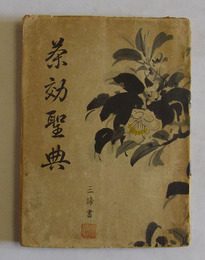 茶効聖典
三諦書